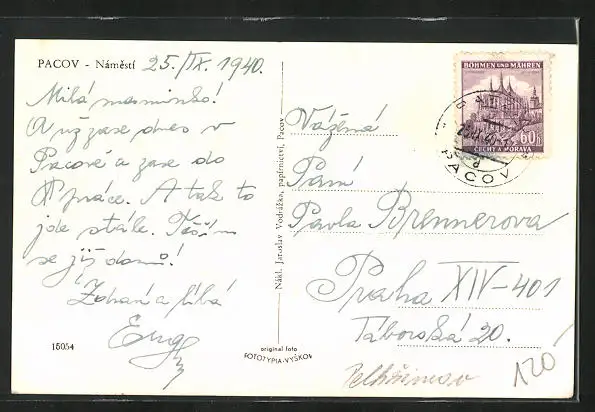 PACOV - Náměstí 25./IX. 1940.
Milá maminko!
A už zase dnes v
Pacově a zase do
práce. A tak to
jde stále. Těším
se již domů!
Zdraví a líbá
Nákl. Jaroslav Vodrážka, papírnictví, Pacov
15054
original foto
FOTOTYPIA-VYŠKOV
BÖHMEN UND MÄHREN
60h
ČECHY A MORAVA
PACOV
Vážená
Paní
Pavla Brennerova
Praha XIV-401
Táborská 20.
Pelhřimov
120